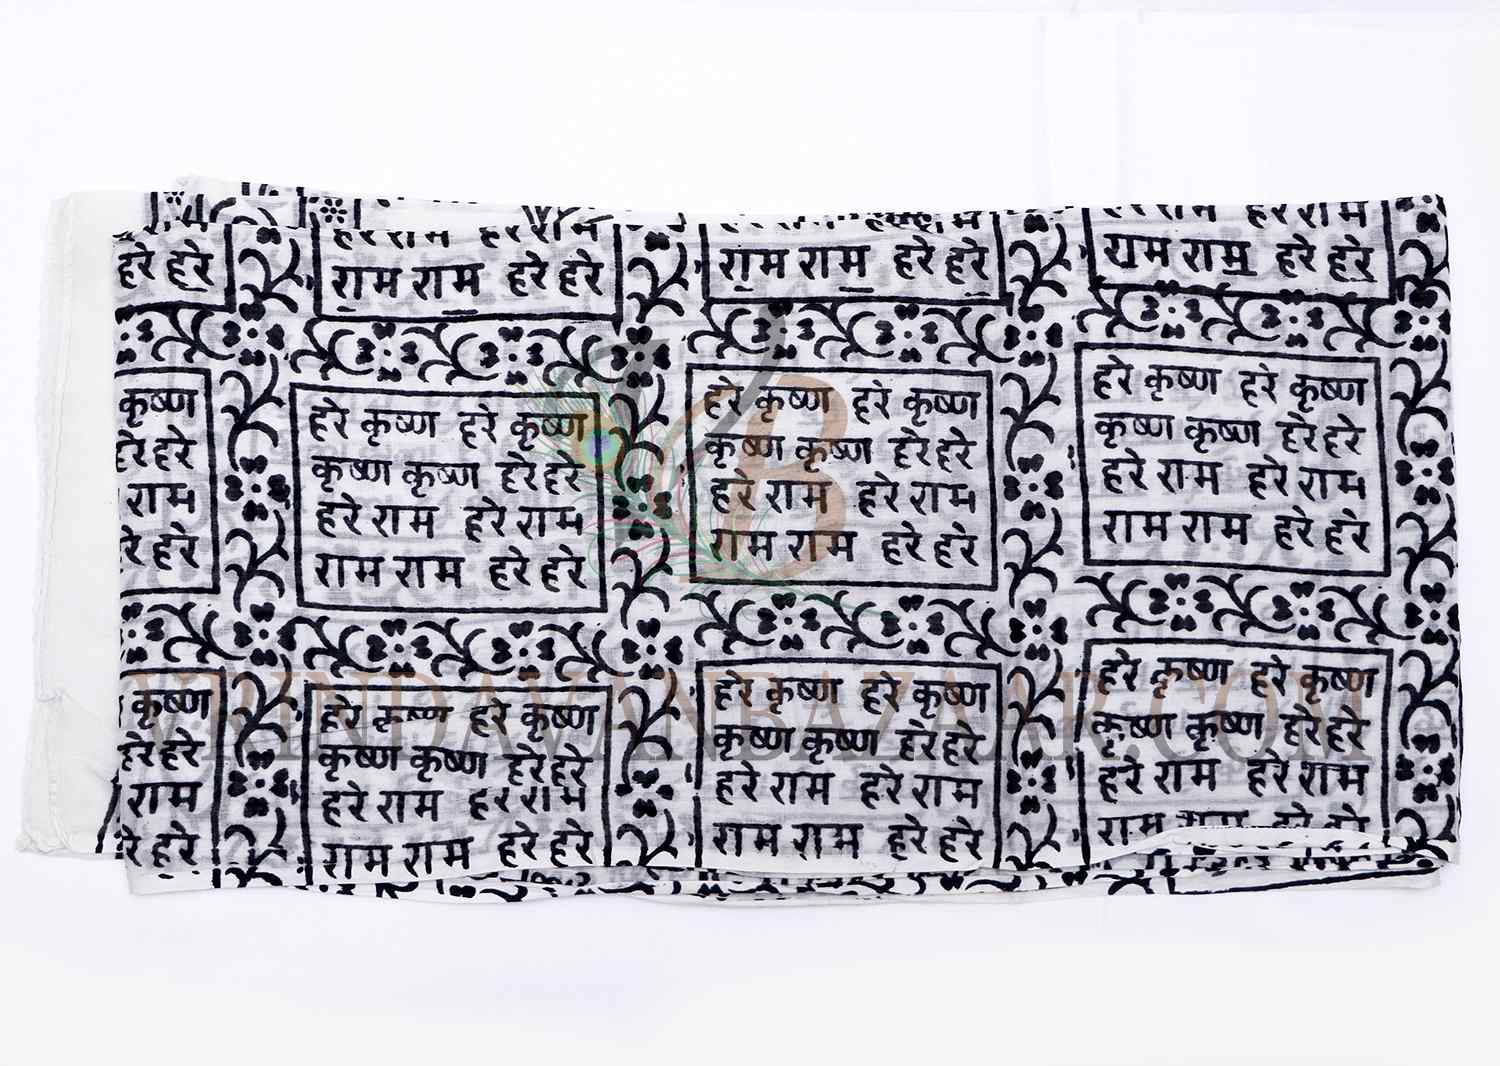 हरे राम हरे राम
हरे राम हरे राम
हरे हरे
राम राम हरे हरे
राम राम हरे हरे
राम राम हरे हरे
कृष्ण
हरे हरे
राम
हरे हरे
हरे कृष्ण हरे कृष्ण
कृष्ण कृष्ण हरे हरे
हरे राम हरे राम
राम राम हरे हरे
हरे कृष्ण हरे कृष्ण
कृष्ण कृष्ण हरे हरे
हरे राम हरे राम
राम राम हरे हरे
हरे कृष्ण हरे कृष्ण
कृष्ण कृष्ण हरे हरे
हरे राम हरे राम
राम राम हरे हरे
कृष्ण
हरे हरे
राम
हरे हरे
हरे कृष्ण हरे कृष्ण
कृष्ण कृष्ण हरे हरे
हरे राम हरे राम
राम राम हरे हरे
हरे कृष्ण हरे कृष्ण
कृष्ण कृष्ण हरे हरे
हरे राम हरे राम
राम राम हरे हरे
हरे कृष्ण हरे कृष्ण
कृष्ण कृष्ण हरे हरे
हरे राम हरे राम
राम राम हरे हरे
VB
VRINDAVANBAZAAR.COM